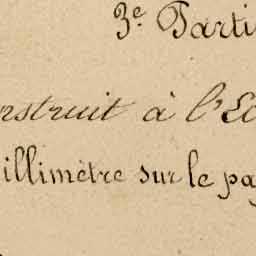 3e Parti
nstruit à l'Ec
illimètre sur le pa